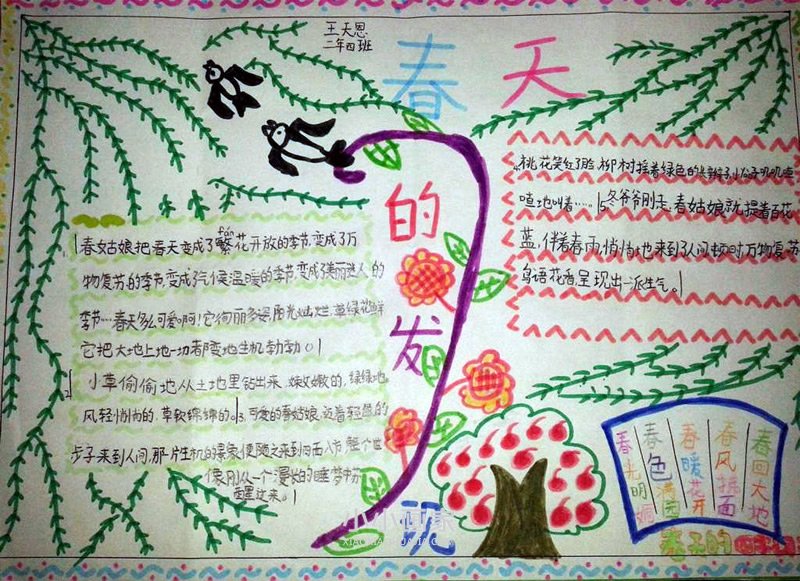 王天恩
二年四班
春天
的发现
1春姑娘把春天变成了繁花开放的季节,变成了万
fán
物复苏的季节,变成了气候温暖的季节,变成了美丽迷人的
季节…春天多么可爱啊!它绚丽多姿,阳光灿烂,草绿花鲜
它把大地上地一切都变地生机勃勃。
2小草偷偷地从土地里钻出来,嫩嫩的,绿绿地
风轻悄悄的,草软绵绵的。3可爱的春姑娘,迈着轻盈的
步子来到人间,那一片生机的景象便随之来到
整个世
像刚从一个漫长的睡梦中苏
醒过来。
4桃花笑红了脸,柳树摇着绿色的
喳地叫着……5冬爷爷刚走,春姑娘就提着百花
篮,伴着春雨,悄悄地来到了人间,顿时万物复苏
鸟语花香呈现出一派生气。
春光明媚
春色满园
春暖花开
春风拂面
春回大地
春天的
小小画家